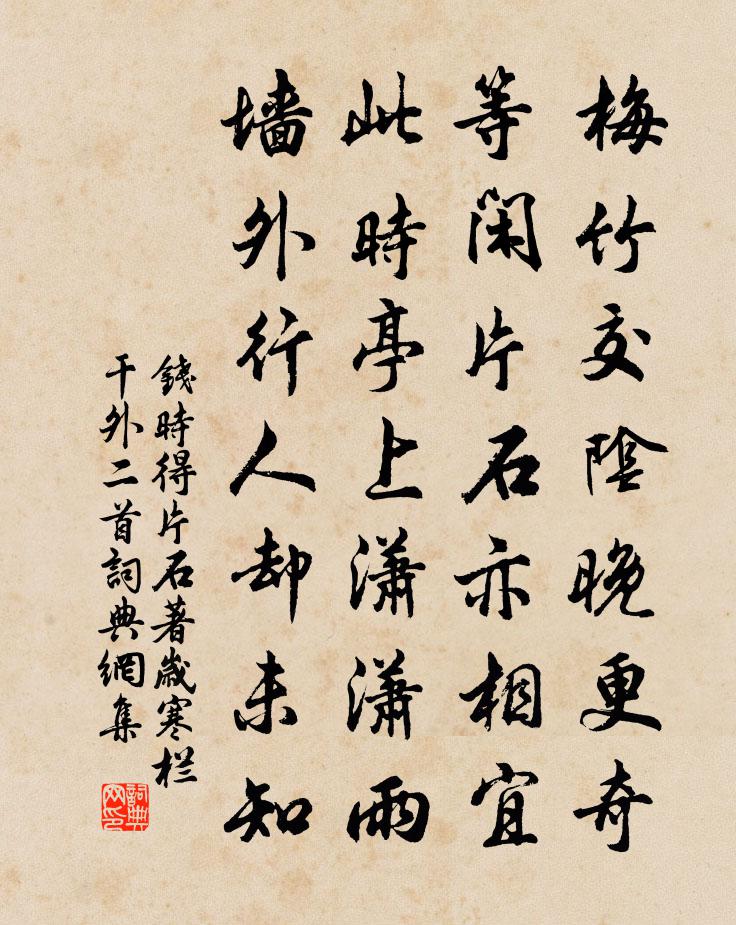 梅竹交陰晚更奇
等閑片石亦相宜
此時亭上瀟瀟雨
墙外行人却未知
錢時得片石著歲寒栏
干外二首詞典網集
詞典
网印